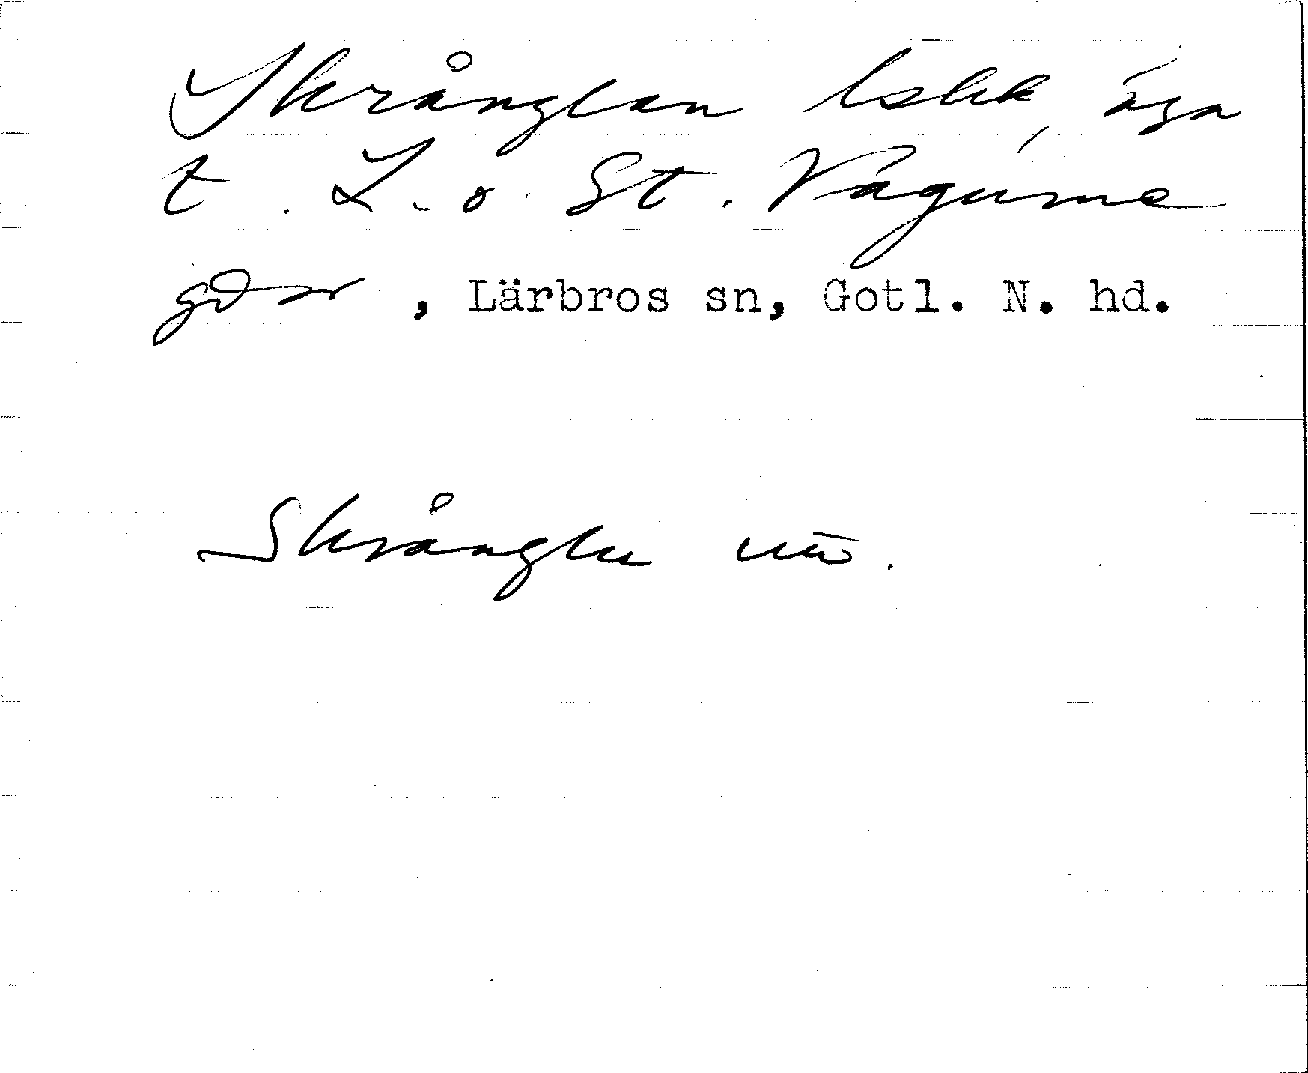 Skrånglan bskk, äga
t. L. o. St. Vägume
gdar, Lärbros sn, Gotl. N. hd.
Skrånglu